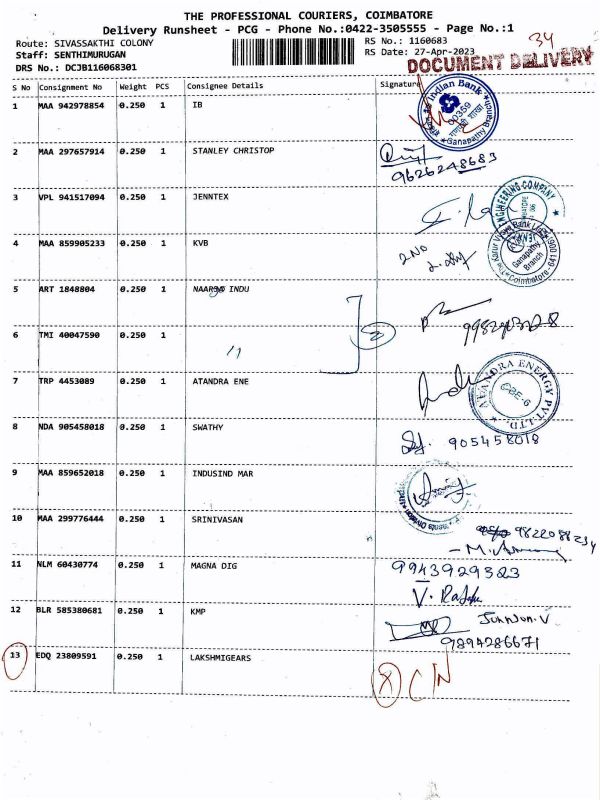 THE PROFESSIONAL COURIERS, COIMBATORE
Delivery Runsheet - PCG - Phone No.:0422-3505555 - Page No.:1
Route: SIVASSAKTHI COLONY RS No.: 1160683 34
Staff: SENTHIMURUGAN RS Date: 27-Apr-2023
DRS No.: DCJB116068301 DOCUMENT DELIVERY
S No Consignment No Weight PCS Consignee Details Signature
1 MAA 942978854 0.250 1 IB
Indian Bank
Ganapathy Branch
2 MAA 297657914 0.250 1 STANLEY CHRISTOP
9626248683
3 VPL 941517094 0.250 1 JENNTEX
ENGINEERING COMPANY
4 MAA 859905233 0.250 1 KVB
2 NO
Karur Vysya Bank
Ganapathy
Branch
Coimbatore-641
5 ART 1848804 0.250 1 INDU
6 TMI 40047590 0.250 1 2
11
7 TRP 4453089 0.250 1 ATANDRA ENE
ATANDRA ENERGY PVT.LTD.
CBE-6
8 NDA 905458018 0.250 1 SWATHY
905458018
9 MAA 859652018 0.250 1 INDUSIND MAR
Division
10 MAA 299776444 0.250 1 SRINIVASAN
9822088234
11 NLM 60430774 0.250 1 MAGNA DIG
9943929323
12 BLR 585380681 0.250 1 KMP
9894286671
13 EDQ 23809591 0.250 1 LAKSHMIGEARS
CN